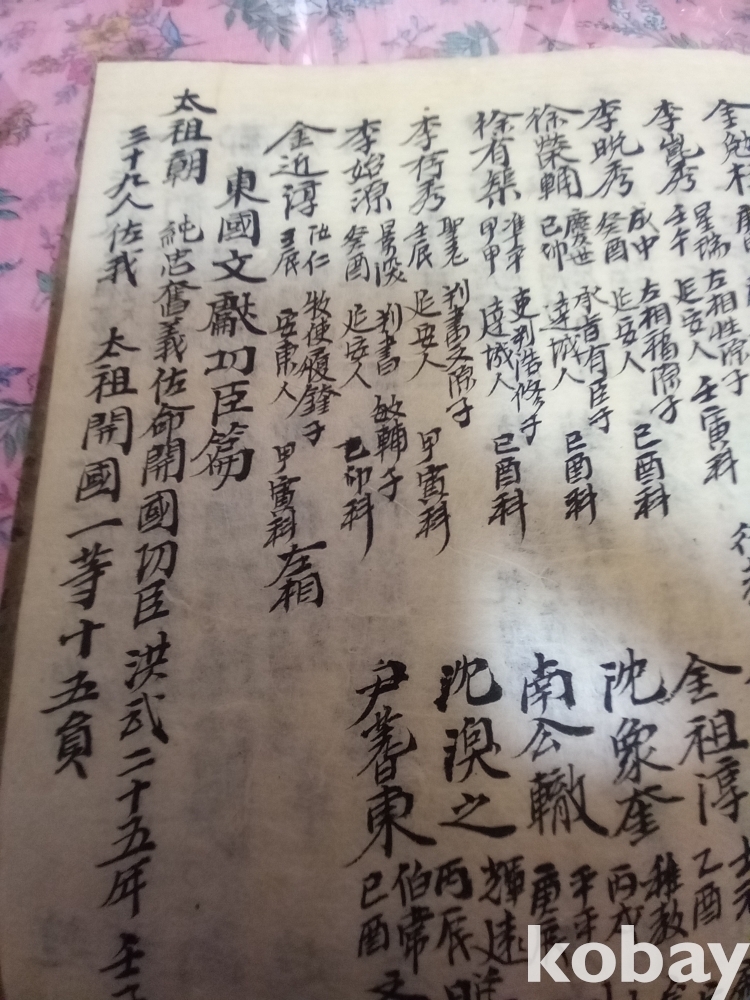 金勉柱
李崑秀 星瑞 左相性源子
壬午 延安人 壬寅科
李晚秀 成中 左相福源子
癸酉 延安人 己酉科
徐榮輔 慶世 承旨有臣子
己卯 達城人 己酉科
徐有榘 准平 吏判浩修子
甲申 達城人 己酉科
李存秀 聖老 判書文源子
壬辰 延安人 甲寅科
李始源 景深 判書敏輔子
癸酉 延安人 己卯科
金近淳 汝仁 牧使履鏴子
壬辰 安東人 甲寅科 左相
金祖淳 士元
乙酉
沈象奎 穉教
丙戌
南公轍 元平
庚辰
沈溭之 輝遠
丙辰
尹蓍東 伯常
己酉
東國文獻功臣篇
太祖朝 純忠奮義佐命開國功臣 洪武二十五年 壬
三十九人佐我 太祖開國 一等十五員
kobay